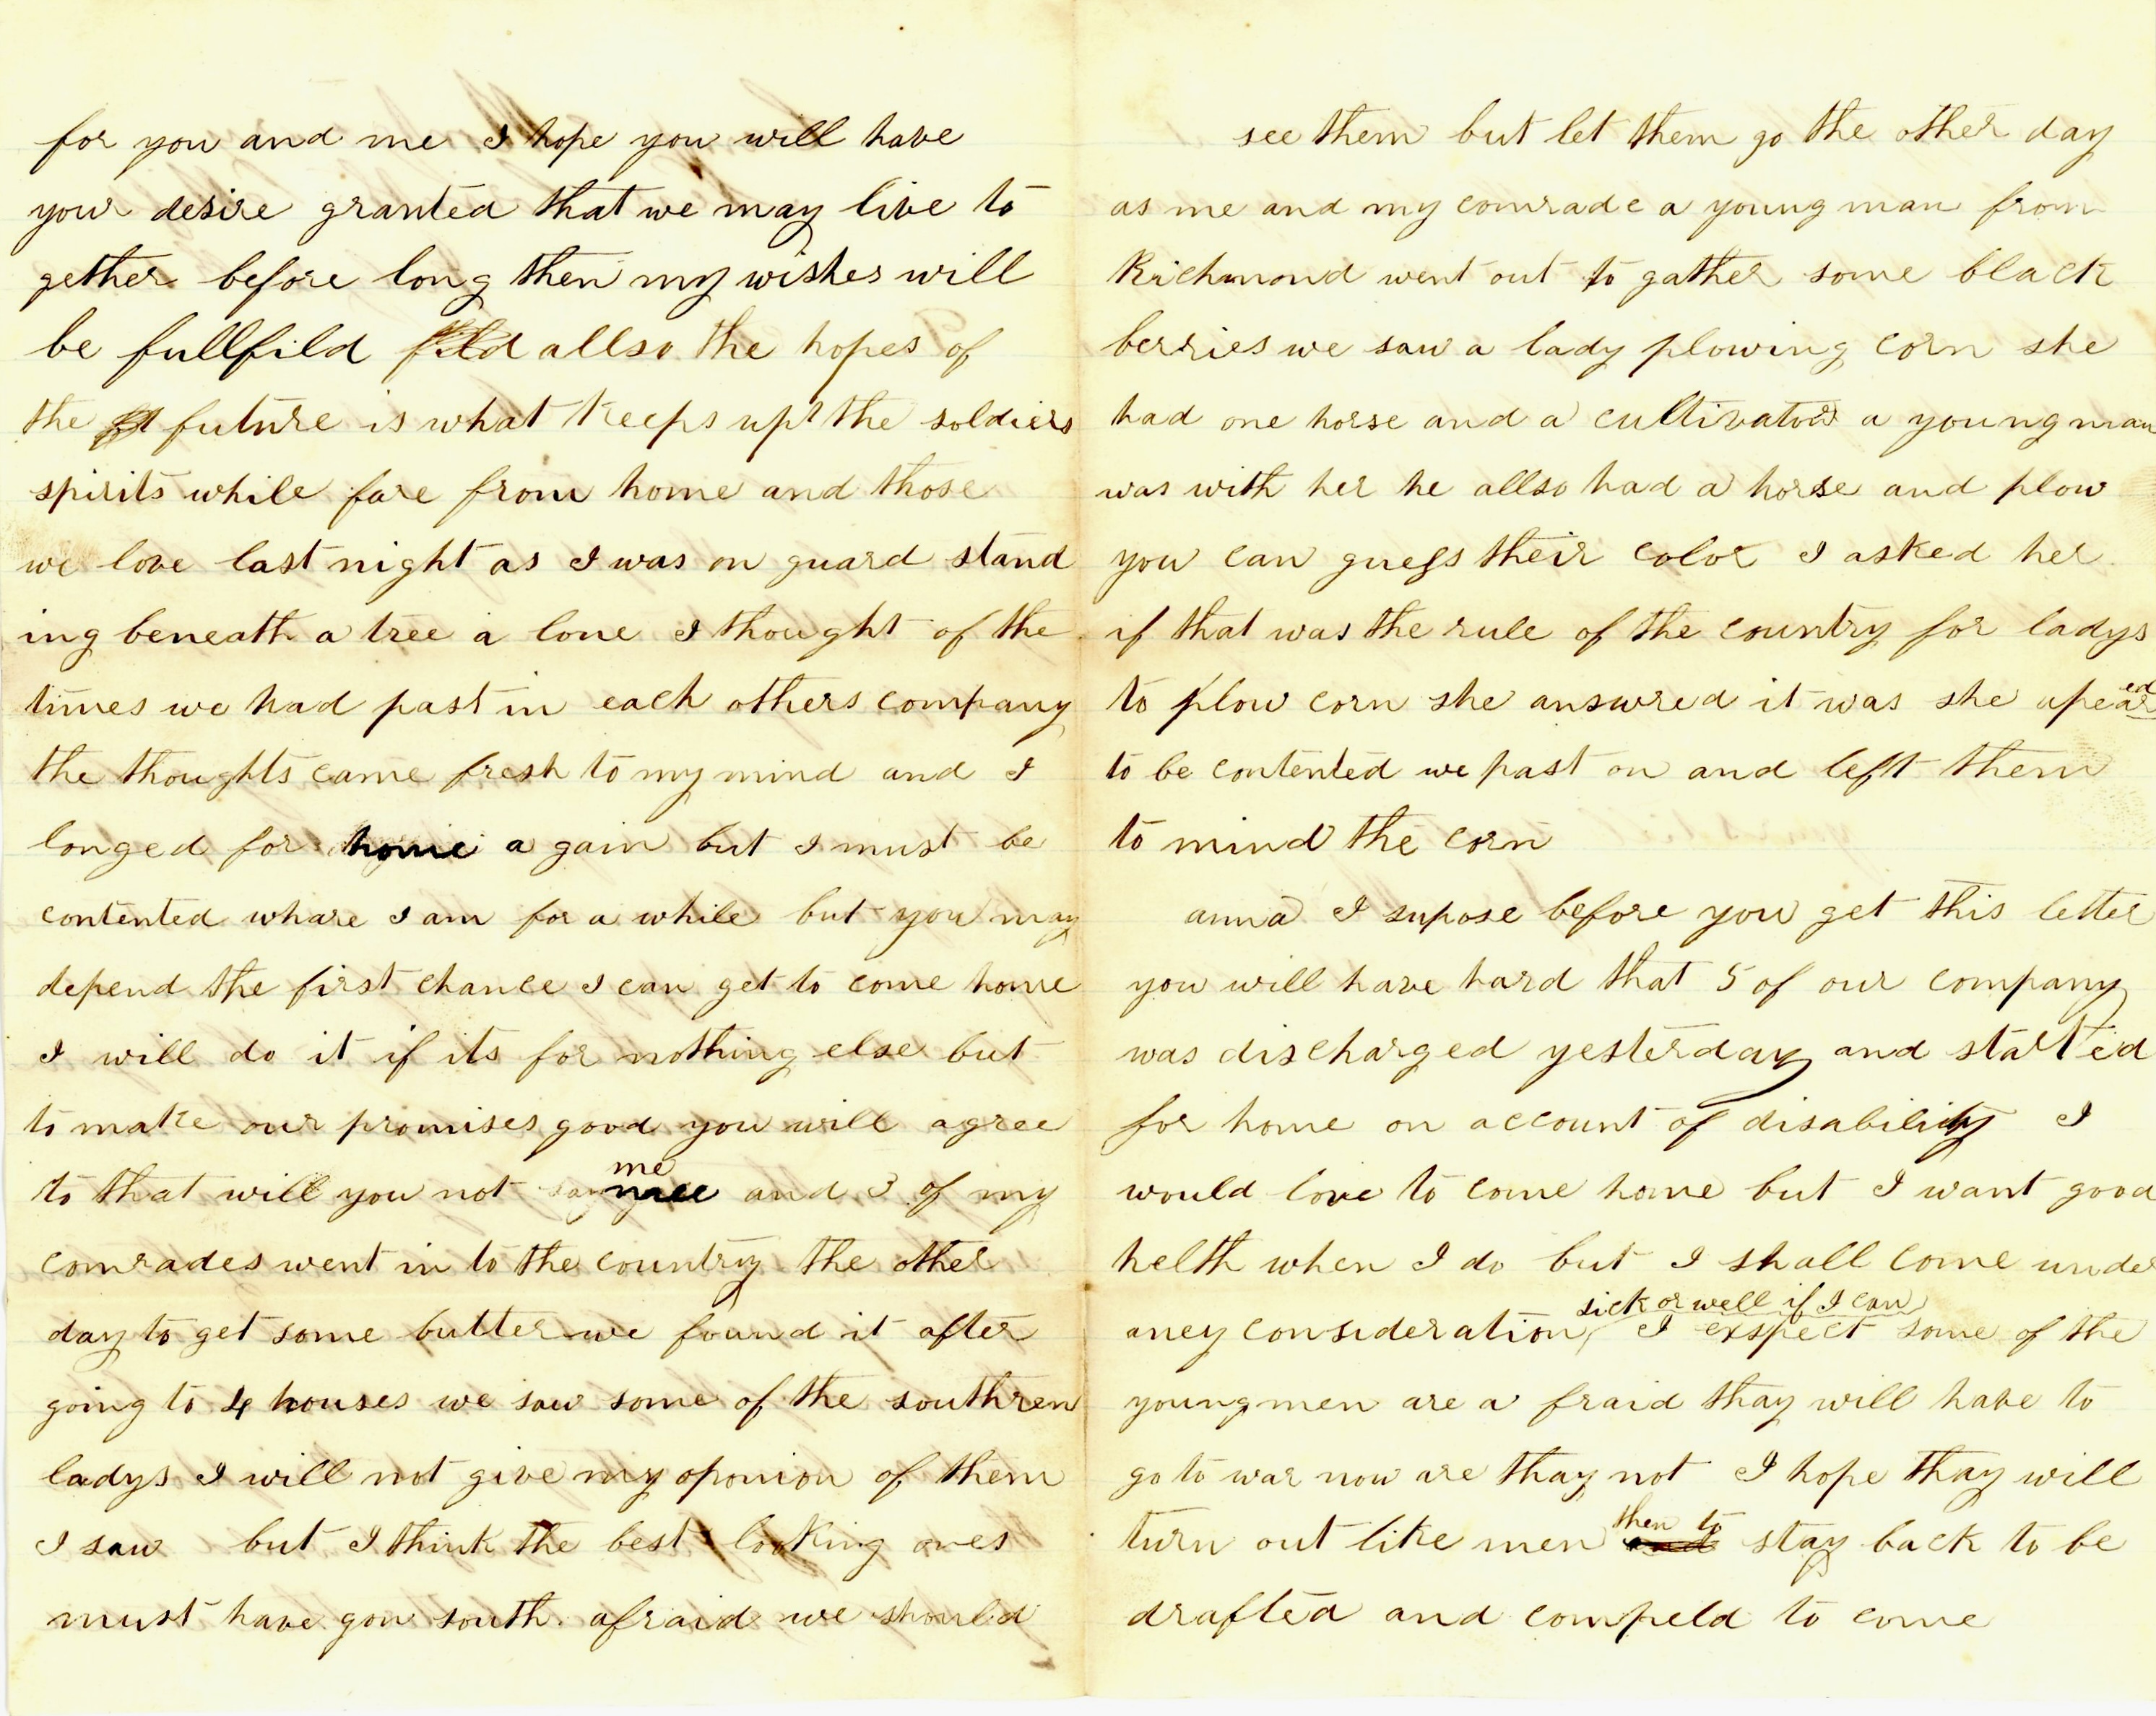 for you and me I hope you will have
your desire granted that we may live to
gether before long then my wishes will
be fullfild fild allso the hopes of
the ft future is what keeps up the soldiers
spirits while fare from home and those
we love last night as I was on guard stand
ing beneath a tree a lone I thought of the
times we had past in each others company
the thoughts came fresh to my mind and I
longed for home a gain but I must be
contented whare I am for a while but you may
depend the first chance I can get to come home
I will do it if its for nothing else but
to make our promises good you will agree
me
to that will you not say and 3 of my
comrades went in to the country the other
day to get some butter we found it after
going to 4 houses we saw some of the southren
ladys I will not give my oponion of them
I saw but I think the best looking ones
must have gon south afraid we should
see them but let them go the other day
as me and my comrade a young man from
Richmond went out to gather some black
berries we saw a lady plowing corn she
had one horse and a cultivator a young man
was with her he allso had a horse and plow
you can guess their color I asked her
if that was the rule of the country for ladys
to plow corn she answred it was she apeared
to be contented we past on and left them
to mind the corn
anna I supose before you get this letter
you will have hard that 5 of our company
was discharged yesterday and started
for home on account of disability I
would love to come home but I want good
helth when I do but I shall come under
sick or well if I can
aney consideration, I exspect some of the
young men are a fraid thay will have to
go to war now are thay not I hope thay will
then to
turn out like men and stay back to be
drafted and compeld to come